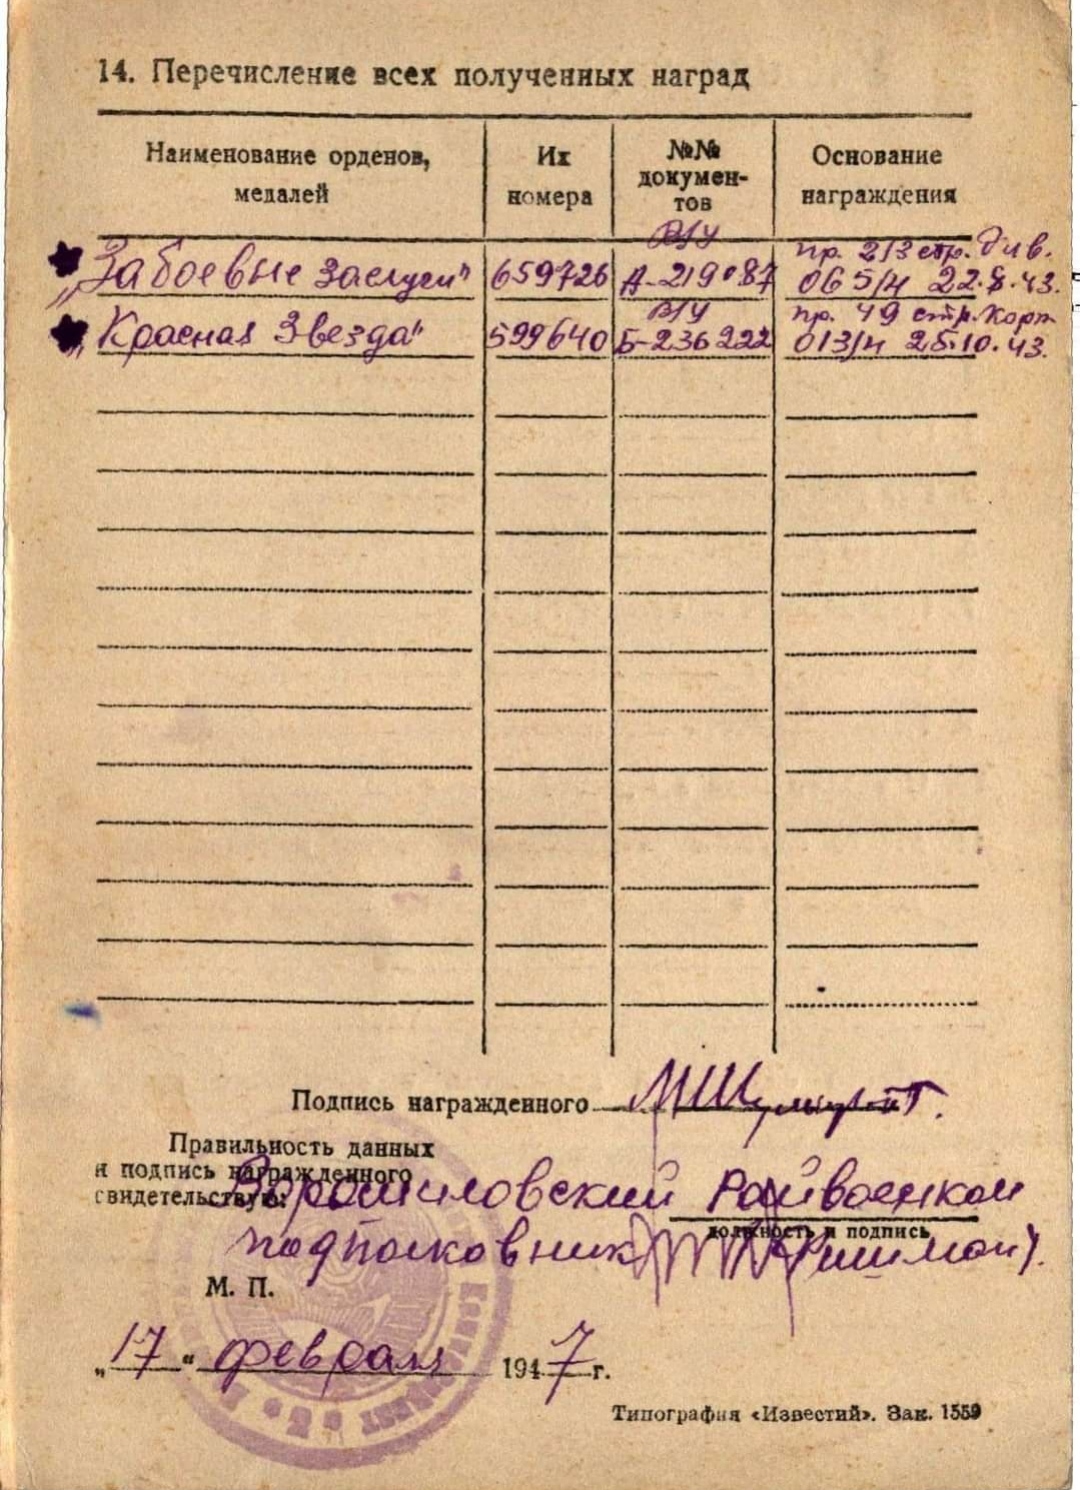 14. Перечисление всех полученных наград
Наименование орденов,
медалей
Их
номера
№№
докумен-
тов
Основание
награждения
„За боевые заслуги" 659726 В/У А-219087 пр. 213 стр. див. 065/н 22.8.43.
„Красная Звезда" 599640 В/У Б-236222 пр. 49 стр. Корп 013/н 25.10.43.
Подпись награжденного
Правильность данных
и подпись награжденного
свидетельствую:
Ворошиловский Райвоенком
должность и подпись
подполковник
М. П.
„17" февраля 1947 г.
Типография «Известий». Зак. 1559